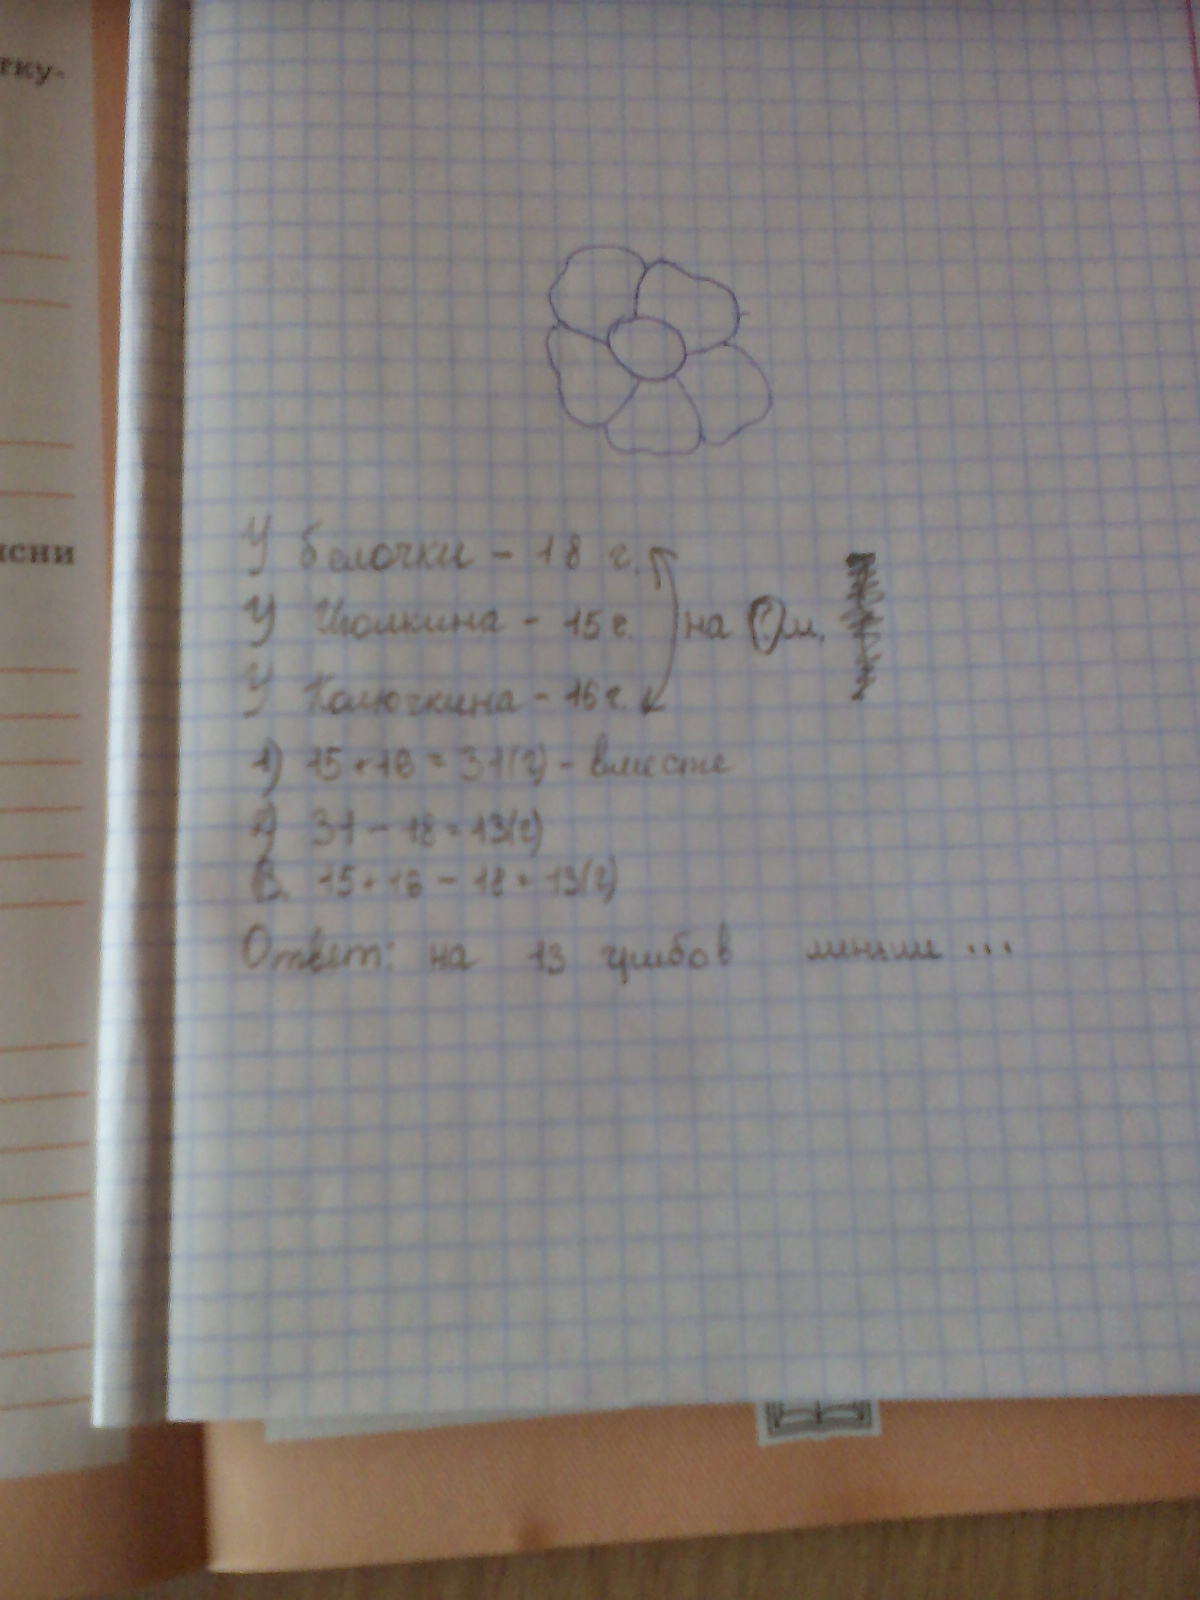 тку-
исни
У белочки - 18 г.
У Иголкина - 15 г. на Ом.
У Колючкина - 16 г.
1) 15+16=31(г) - вместе
2) 31-18=13(г)
В. 15+16-18=13(г)
Ответ: на 13 грибов меньше ...